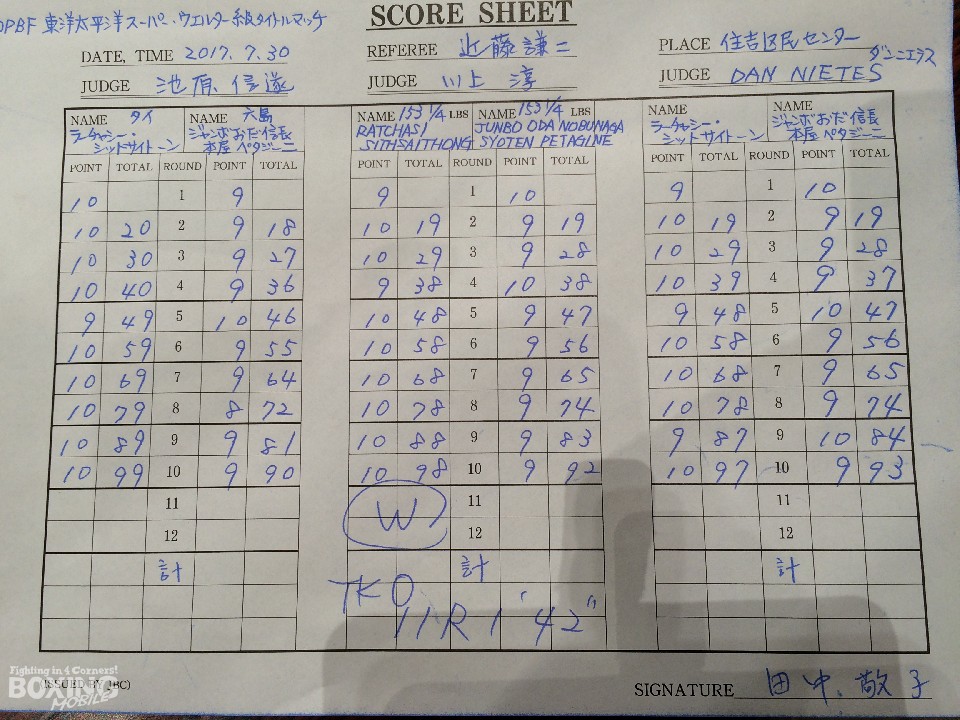 SCORE SHEET
OPBF 東洋太平洋スーパー・ウエルター級タイトルマッチ
DATE, TIME 2017. 7. 30 REFEREE 近藤謙二 PLACE 住吉区民センター
ダンニエテス
JUDGE 池原信遂 JUDGE 川上淳 JUDGE DAN NIETES
NAME タイ NAME 六島 NAME 153 1/4 LBS NAME 153 1/4 LBS NAME NAME
ラーチャシー・シッドサイトーン ジャンボおだ信長本屋ペタジーニ RATCHASI SITHSAITHONG JUNBO ODA NOBUNAGA SYOTEN PETAGINE ラーチャシー・シッドサイトーン ジャンボおだ信長本屋ペタジーニ
POINT TOTAL ROUND POINT TOTAL POINT TOTAL ROUND POINT TOTAL POINT TOTAL ROUND POINT TOTAL
10 1 9 9 1 10 9 1 10
10 20 2 9 18 10 19 2 9 19 10 19 2 9 19
10 30 3 9 27 10 29 3 9 28 10 29 3 9 28
10 40 4 9 36 9 38 4 10 38 10 39 4 9 37
9 49 5 10 46 10 48 5 9 47 9 48 5 10 47
10 59 6 9 55 10 58 6 9 56 10 58 6 9 56
10 69 7 9 64 10 68 7 9 65 10 68 7 9 65
10 79 8 8 72 10 78 8 9 74 10 78 8 9 74
10 89 9 9 81 10 88 9 9 83 9 87 9 10 84
10 99 10 9 90 10 98 10 9 92 10 97 10 9 93
11 W 11 11
12 12 12
計 計 計
TKO 11R 1'42"
Fighting in 4 Corners!
BOXING MOBILE
(ISSUED BY JBC)
SIGNATURE 田中敬子